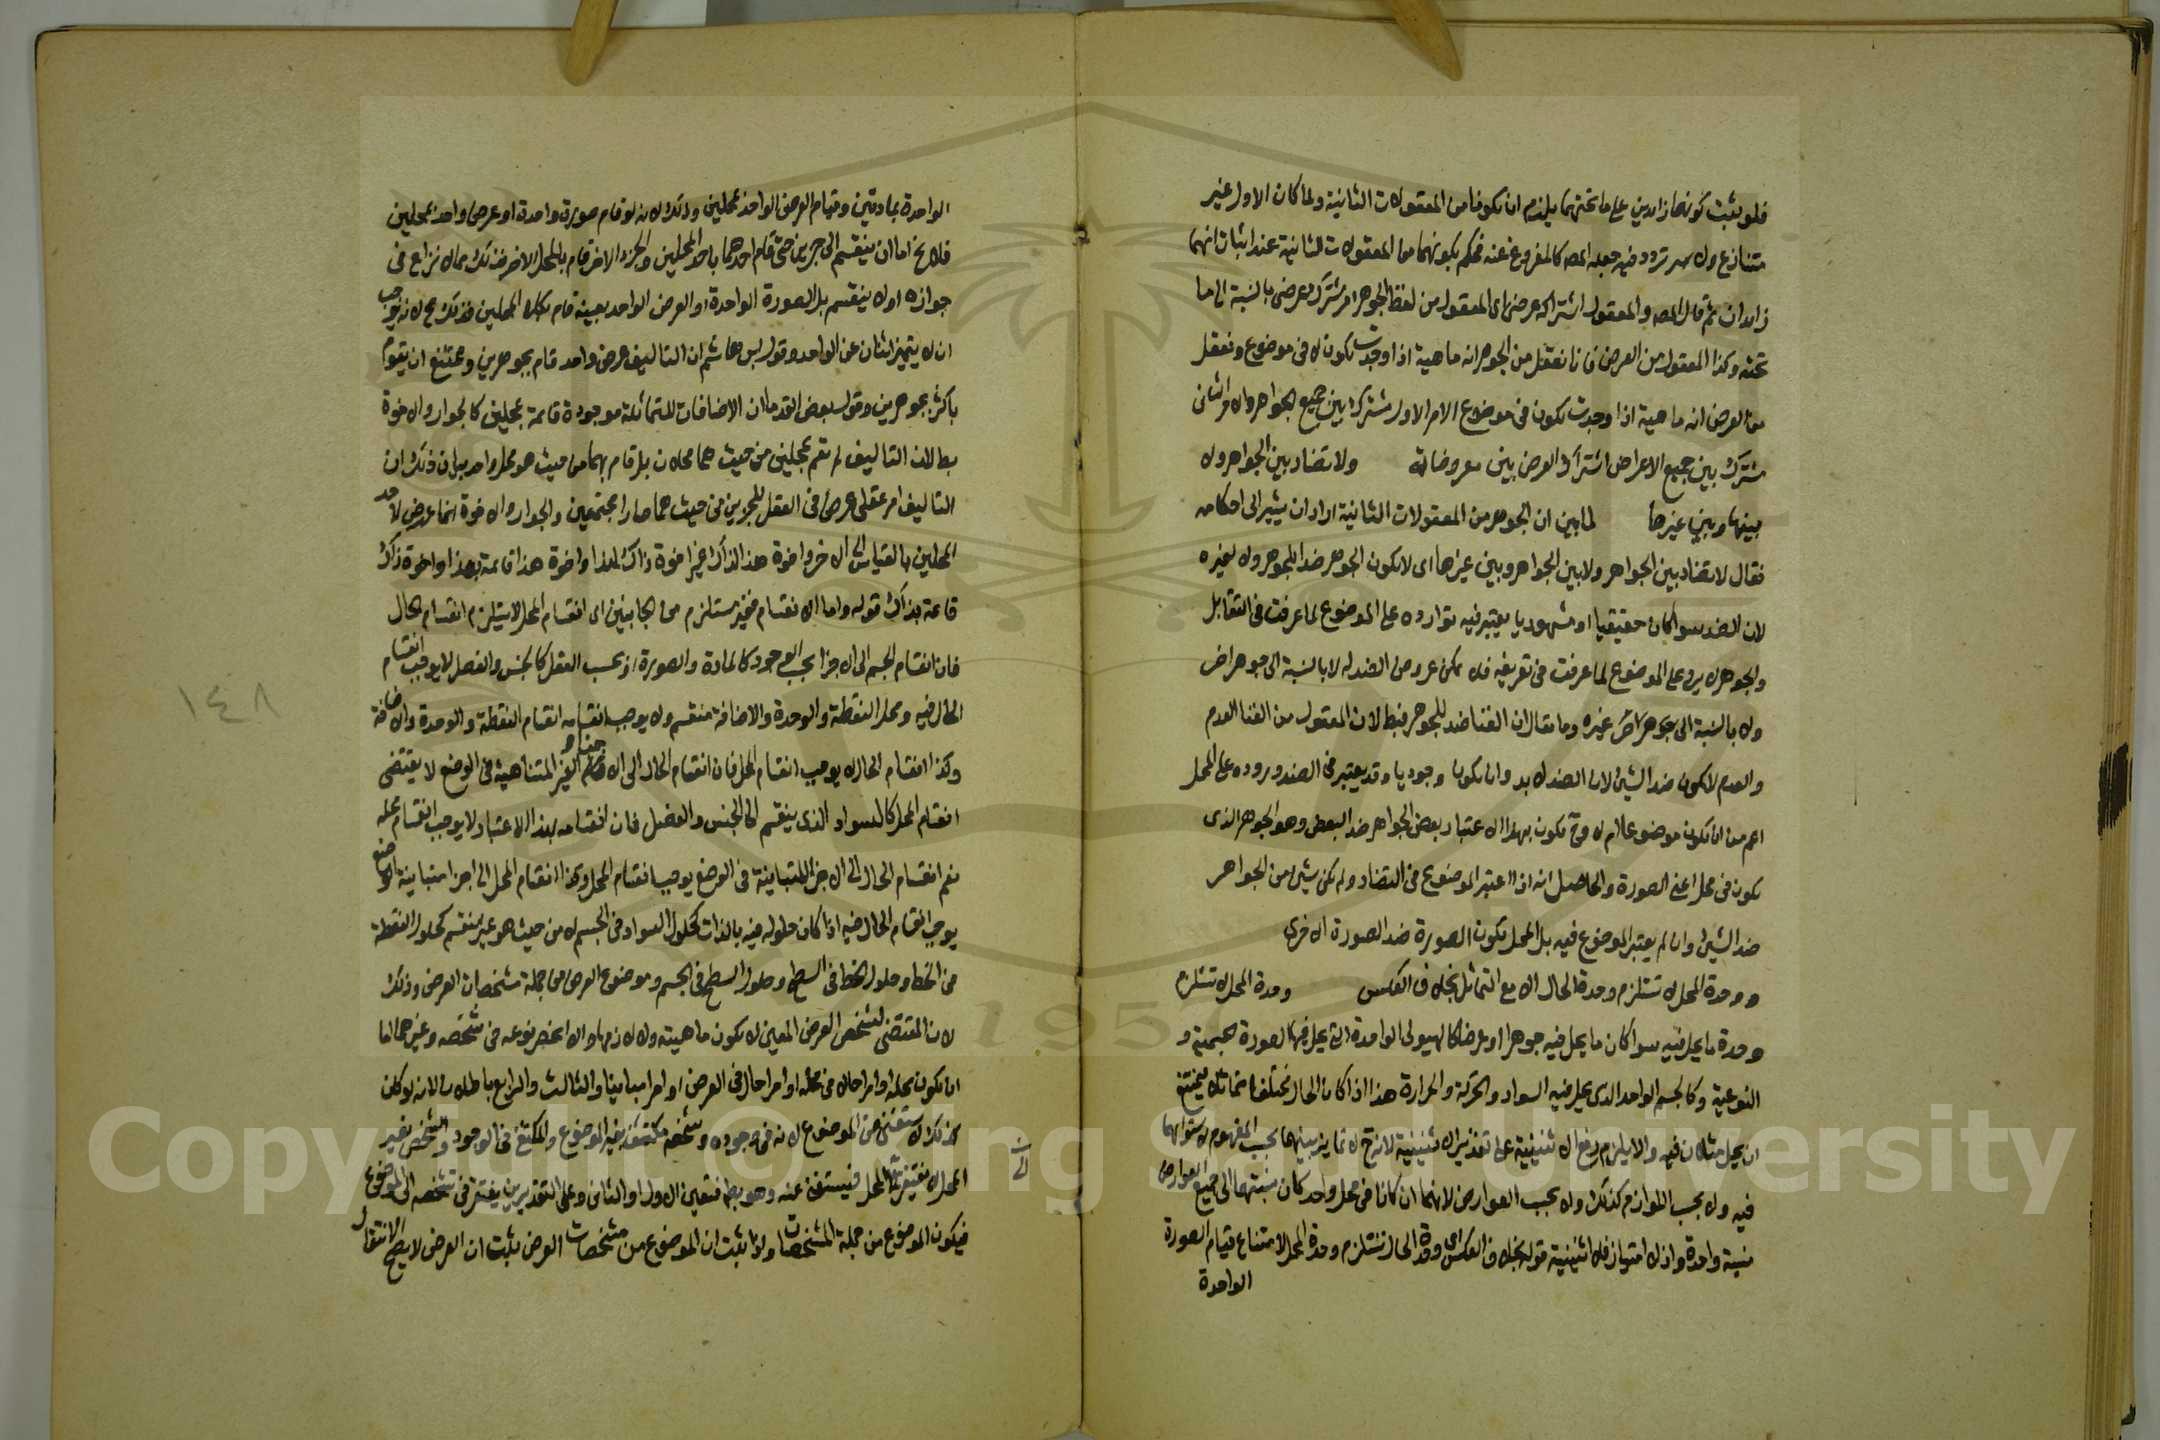 فلو ثبت كونهما زايدين على ما تحتهما يلزم ان يكونا من المعقولات الثانية ولما كان الاول غير
متنازع ولا تردد فيه جعله المصه كالمفروغ عنه فحكم بكونهما من المعقولات الثانية عند اثبات انهما
زايدان ثم قال المصه والمعقول اشتراكه عرضى اى المعقول من لفظ الجوهر امر مشترك عرضى بالنسبة الى ما
تحته وكذا المعقول من العرض فانا نعقل من الجوهر انه ماهية اذا وجدت تكون لا فى موضوع ونعقل
من العرض انه ماهية اذا وجدت تكون فى موضوع الامر الاول مشترك بين جميع الجواهر والامر الثانى
مشترك بين جميع الاعراض اشتراك العرض بين معروضاته ولا تضاد بين الجواهر ولا
بينها وبين غيرها لما بين ان الجوهر من المعقولات الثانية اراد ان يشير الى احكامه
فقال لا تضاد بين الجواهر ولا بين الجواهر وبين غيرها اى لا يكون الجوهر ضدا للجوهر ولا لغيره
لان الضد سواء كان حقيقيا او مشهوريا يعتبر فيه توارده على الموضوع لما عرفت فى التقابل
والجوهر لا يرد على الموضوع لما عرفت فى تعريفه فلا يمكن عروض الضد له لا بالنسبة الى جوهر اخر
ولا بالنسبة الى جوهر اخر غيره وما يقال ان الفنا ضد للجوهر فبط لان المعقول من الفنا العدم
والعدم لا يكون ضد الشئ لان الضد لا بد وان يكون وجوديا وقد يعتبر فى الضد وروده على المحل
اعم من ان يكون موضوعا ام لا وح يكون بهذا الاعتبار بعض الجواهر ضد البعض وهو الجوهر الذى
يكون فى محل اعنى الصورة والحاصل انه اذا اعتبر الموضوع فى التضاد ولم يكن شئ من الجواهر
ضد الشئ وان لم يعتبر الموضوع فيه بل المحل تكون الصورة ضد الصورة الاخرى
ووحدة المحل لا تستلزم وحدة الحال الا مع التماثل بخلاف العكس وحدة المحل لا تستلزم
وحدة ما يحل فيه سواء كان ما يحل فيه جوهرا او عرضا كالهيولى الواحدة التى يحل فيها الصورة الجسمية و
النوعية وكالجسم الواحد الذى يحل فيه السواد والحركة والحرارة هذا اذا كان الحال مختلفا متماثلا يمتنع
ان يحل مثلان فيه والا يلزم رفع الاثنينية على تقدير الاثنينية لانه ح لا تمايز بينهما بحسب المفهوم لاستوائهما
فيه ولا بحسب اللوازم كذلك ولا بحسب العوارض لانهما ان كانا فى محل واحد كان نسبتهما الى جميع العوارض
نسبة واحدة واذ لا امتياز فلا اثنينية قوله بخلاف العكس اى وحدة الحال تستلزم وحدة المحل لامتناع قيام الصورة
الواحدة
الواحدة بمادتين وقيام العرض الواحد بمحلين وذلك لانه لو قام صورة واحدة او عرض واحد بمحلين
فلا يخ اما ان ينقسم الى جزءين حتى قام احدهما باحد المحلين والجزء الاخر قام بالمحل الاخر فذلك مما لا نزاع فى
جوازه او لا ينقسم بل الصورة الواحدة او العرض الواحد بعينه قام بكلا المحلين فذلك مح لانه يوجب
ان لا يتميز اثنان عن الواحد وقول ابى هاشم ان التاليف عرض واحد قام بجوهرين وممتنع ان يقوم
باكثر بجوهرين وقول بعض القدما ان الاضافات المتماثلة موجودة قائمة بمحلين كالجوار والاخوة
بط لان التاليف لم يقم بمحلين من حيث هما محلان بل قام بهما من حيث هو محل واحد بيان ذلك ان
التاليف امر عقلى عرض فى العقل للجزءين من حيث هما صارا مجتمعين والجوار والاخوة انما عرض لاحد
المحلين بالقياس الى الاخر واخوة هذا لذاك غير اخوة ذاك لهذا واخوة هذا قائمة بهذا واخوة ذاك
قائمة بذاك قوله واما الانقسام فغير مستلزم من الجانبين اى انقسام المحل لا يستلزم انقسام الحال
فان انقسام الجسم الى الاجزا بحسب الوجود كالمادة والصورة او بحسب العقل كالجنس والفصل لا يوجب انقسام
الحال فيه ومحل النقطة والوحدة والاضافة منقسم ولا يوجب انقسامه انقسام النقطة والوحدة والاضافة
وكذا انقسام الحال لا يوجب انقسام المحل فان انقسام الحال الى الاجزاء الغير المتناهية فى الوضع لا يقتضى
انقسام المحل كالسواد الذى ينقسم الى الجنس والفصل فان انقسامه بهذا الاعتبار لا يوجب انقسام محله
نعم انقسام الحال الى الاجزا المتباينة فى الوضع يوجب انقسام المحل وكذا انقسام المحل الى اجزا متباينة الوضع
يوجب انقسام الحال فيه اذا كان حلوله فيه بالذات كحلول السواد فى الجسم لا من حيث هو غير منقسم كحلول النقطة
فى الخط وحلول الخط فى السطح وحلول السطح فى الجسم وموضوع العرض من جملة مشخصات العرض وذلك
لان المقتضى لتشخص العرض المعين لا يكون ماهيته ولا لازمها والا انحصر نوعه فى شخصه وغيرهما اما
ان يكون محله او امرا حالا فى محله او امرا حالا فى العرض او امرا مباينا والثالث والرابع باطلان لانه لو كان
كذلك لاستغنى عن الموضوع لانه فى وجوده وتشخصه مكتف بغير الموضوع والمكتفى فى الوجود والتشخص بغير
المحل لا يفتقر الى المحل فيستغنى عنه وهو بط فتعين الاول او الثانى وعلى التقديرين يفتقر فى تشخصه الى الموضوع
فيكون الموضوع من جملة المشخصات ولما ثبت ان الموضوع من مشخصات العرض يثبت ان العرض لا يصح الانتقال
١٤٨
Copyright © King Saud University
1957